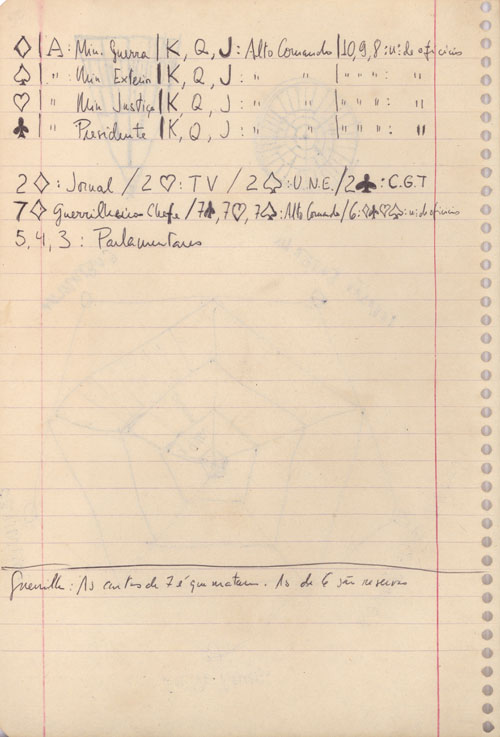 ♢ | A: Min. Guerra | K, Q, J: Alto Comando | 10, 9, 8: nº de ofícios
♤ | " : Min Exterior | K, Q, J: " " | " " " : "
♡ | " : Min Justiça | K, Q, J: " " | " " " : "
♣ | " Presidente | K, Q, J: " " | " " " : "
2♢: Jornal / 2♡: TV / 2♤: U.N.E. / 2♣: C.G.T
7♢ Guerrilheiros Chefe / 7♣, 7♡, 7♤: Alto Comando / 6: ♢♣♡♤: nº de ofícios
5, 4, 3: Parlamentares
Guerrilh: As cartas de 7 é que matam. As de 6 são reservas